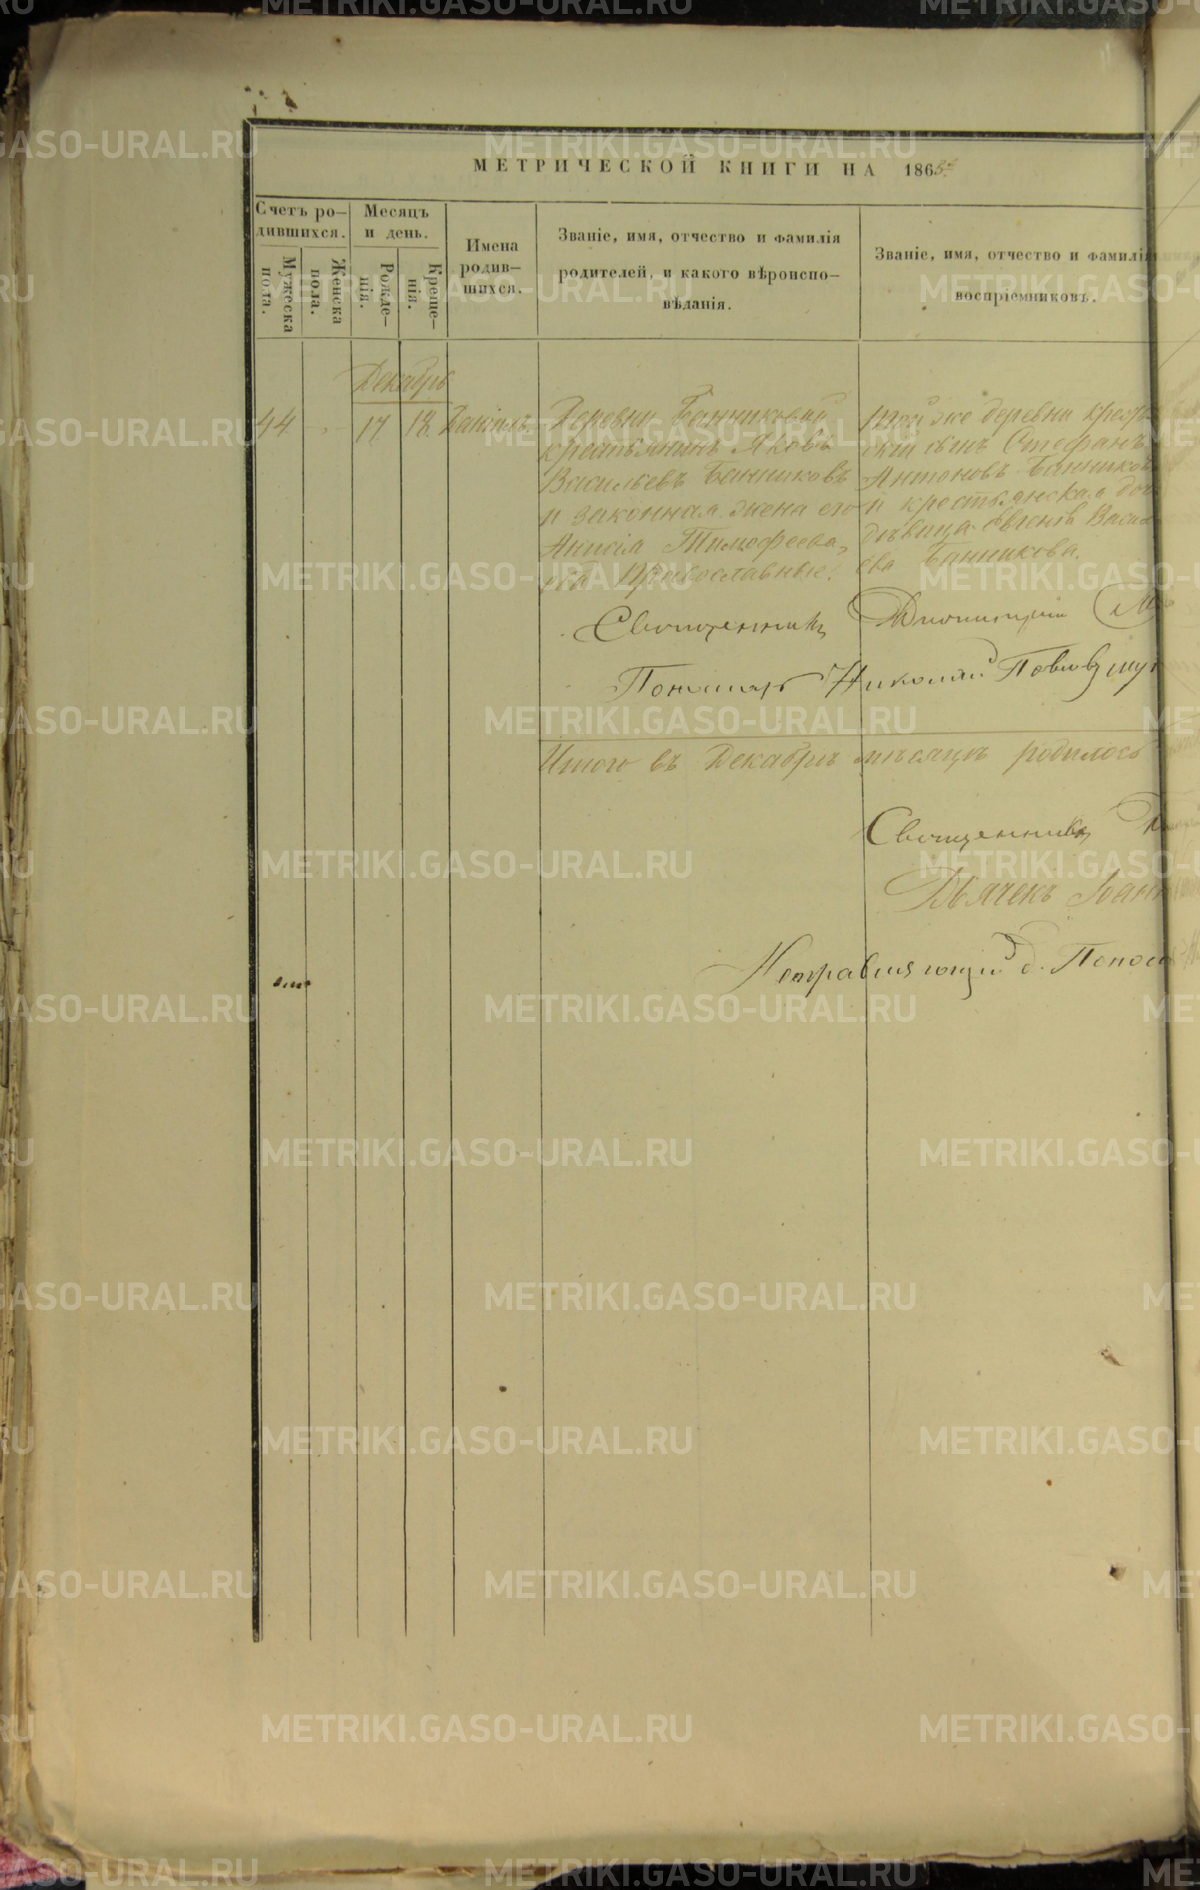 МЕТРИЧЕСКОЙ КНИГИ НА 186
Счетъ ро-
дившихся.
Мужеска
пола.
Женска
пола.
Месяцъ
и день.
Рожде-
нія.
Креще-
нія.
Имена
родив-
шихся.
Званіе, имя, отчество и фамилія
родителей, и какого вѣроиспо-
вѣданія.
Званіе, имя, отчество и фамилія
воспріемниковъ.
Декабрь
44
17
18
Даніилъ
Деревни Банниковой
крестьянинъ Яковъ
Васильевъ Банниковъ
и законная жена его
Анисія Тимофеева,
оба Православные.
Той же деревни крестьян
скій сынъ Стефанъ
Антоновъ Банников
и крестьянская доч
дѣвица Евгенія Васил
ева Банникова.
Священникъ Димитрій
Пономарь Николай Павлов
Итого въ Декабрѣ мѣсяцѣ родилось
Священникъ
Дьячекъ Іоанн
Исправляющій д. Поном
METRIKI.GASO-URAL.RU